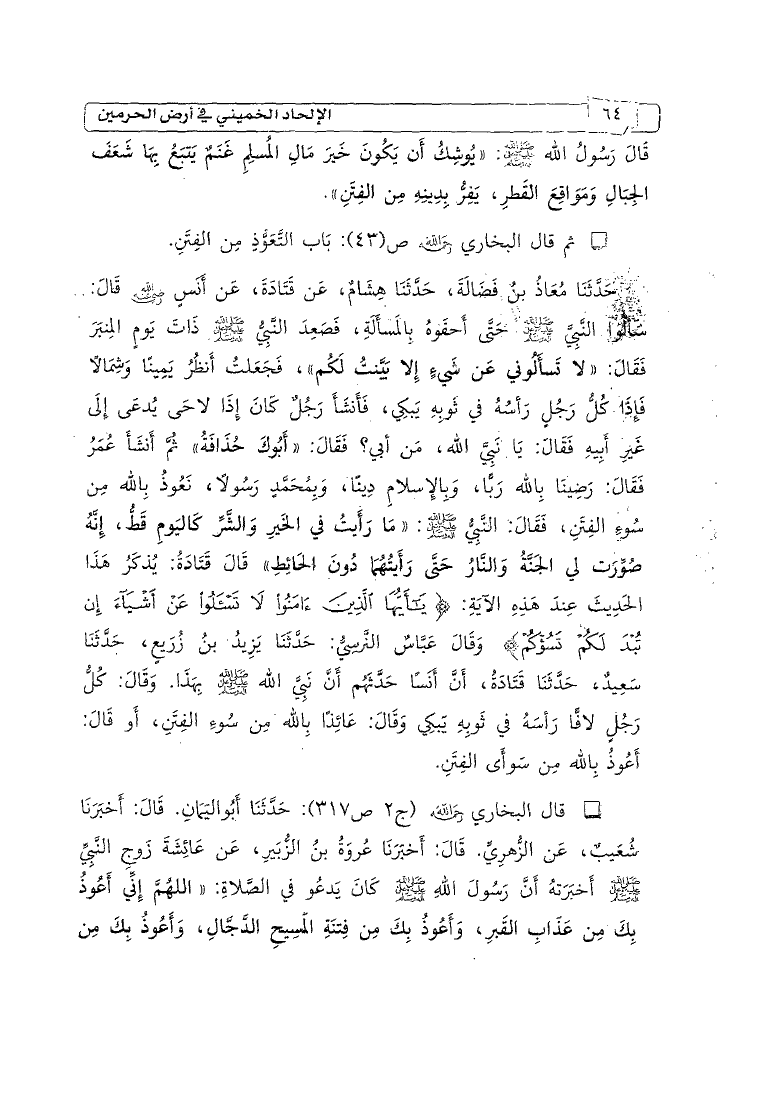 ٦٤ الإلحاد الخميني في أرض الحرمين
قَالَ رَسُولُ الله ﷺ: «يُوشِكُ أَن يَكُونَ خَيرَ مَالِ المُسلِمِ غَنَمٌ يَتبَعُ بِهَا شَعَفَ
الجِبَالِ وَمَوَاقِعَ القَطرِ، يَفِرُّ بِدِينِهِ مِن الفِتَنِ».
❏ ثم قال البخاري رحمه الله ص(٤٣): بَاب التَّعَوُّذِ مِن الفِتَنِ.
حَدَّثَنَا مُعَاذُ بنُ فَضَالَةَ، حَدَّثَنَا هِشَامٌ، عَن قَتَادَةَ، عَن أَنَسٍ رضي الله عنه قَالَ:
سَأَلُوا النَّبِيَّ ﷺ حَتَّى أَحفَوهُ بِالمَسأَلَةِ، فَصَعِدَ النَّبِيُّ ﷺ ذَاتَ يَومٍ المِنبَرَ
فَقَالَ: «لا تَسأَلُوني عَن شَيءٍ إِلا بَيَّنتُ لَكُم»، فَجَعَلتُ أَنظُرُ يَمِينًا وَشِمَالًا
فَإِذَا كُلُّ رَجُلٍ رَأسُهُ في ثَوبِهِ يَبكِي، فَأَنشَأَ رَجُلٌ كَانَ إِذَا لاحَى يُدعَى إِلَى
غَيرِ أَبِيهِ فَقَالَ: يَا نَبِيَّ الله، مَن أَبي؟ فَقَالَ: «أَبُوكَ حُذَافَةُ» ثُمَّ أَنشَأَ عُمَرُ
فَقَالَ: رَضِينَا بِالله رَبًّا، وَبِالإِسلامِ دِينًا، وَبِمُحَمَّدٍ رَسُولًا، نَعُوذُ بِالله مِن
سُوءِ الفِتَنِ، فَقَالَ: النَّبِيُّ ﷺ: «مَا رَأَيتُ في الخَيرِ وَالشَّرِّ كَاليَومِ قَطُّ، إِنَّهُ
صُوِّرَت لي الجَنَّةُ وَالنَّارُ حَتَّى رَأَيتُهُمَا دُونَ الحَائِطِ» قَالَ قَتَادَةُ: يُذكَرُ هَذَا
الحَدِيثَ عِندَ هَذِهِ الآيَةِ: ﴿يَٰٓأَيُّهَا ٱلَّذِينَ ءَامَنُوا۟ لَا تَسْـَٔلُوا۟ عَنْ أَشْيَآءَ إِن
تُبْدَ لَكُمْ تَسُؤْكُمْ﴾ وَقَالَ عَبَّاسٌ النَّرسِيُّ: حَدَّثَنَا يَزِيدُ بنُ زُرَيعٍ، حَدَّثَنَا
سَعِيدٌ، حَدَّثَنَا قَتَادَةُ، أَنَّ أَنَسًا حَدَّثَهُم أَنَّ نَبِيَّ الله ﷺ بِهَذَا. وَقَالَ: كُلُّ
رَجُلٍ لافًّا رَأسَهُ في ثَوبِهِ يَبكِي وَقَالَ: عَائِذًا بِالله مِن سُوءِ الفِتَنِ، أَو قَالَ:
أَعُوذُ بِالله مِن سَوأَى الفِتَنِ.
❏ قال البخاري رحمه الله (ج٢ ص٣١٧): حَدَّثَنَا أَبُواليَمَانِ. قَالَ: أَخبَرَنَا
شُعَيبٌ، عَن الزُّهرِيِّ. قَالَ: أَخبَرَنَا عُروَةُ بنُ الزُّبَيرِ، عَن عَائِشَةَ زَوجِ النَّبِيِّ
ﷺ أَخبَرَتهُ أَنَّ رَسُولَ اللهِ ﷺ كَانَ يَدعُو في الصَّلاةِ: «اللهُمَّ إِنِّي أَعُوذُ
بِكَ مِن عَذَابِ القَبرِ، وَأَعُوذُ بِكَ مِن فِتنَةِ المَسِيحِ الدَّجَّالِ، وَأَعُوذُ بِكَ مِن